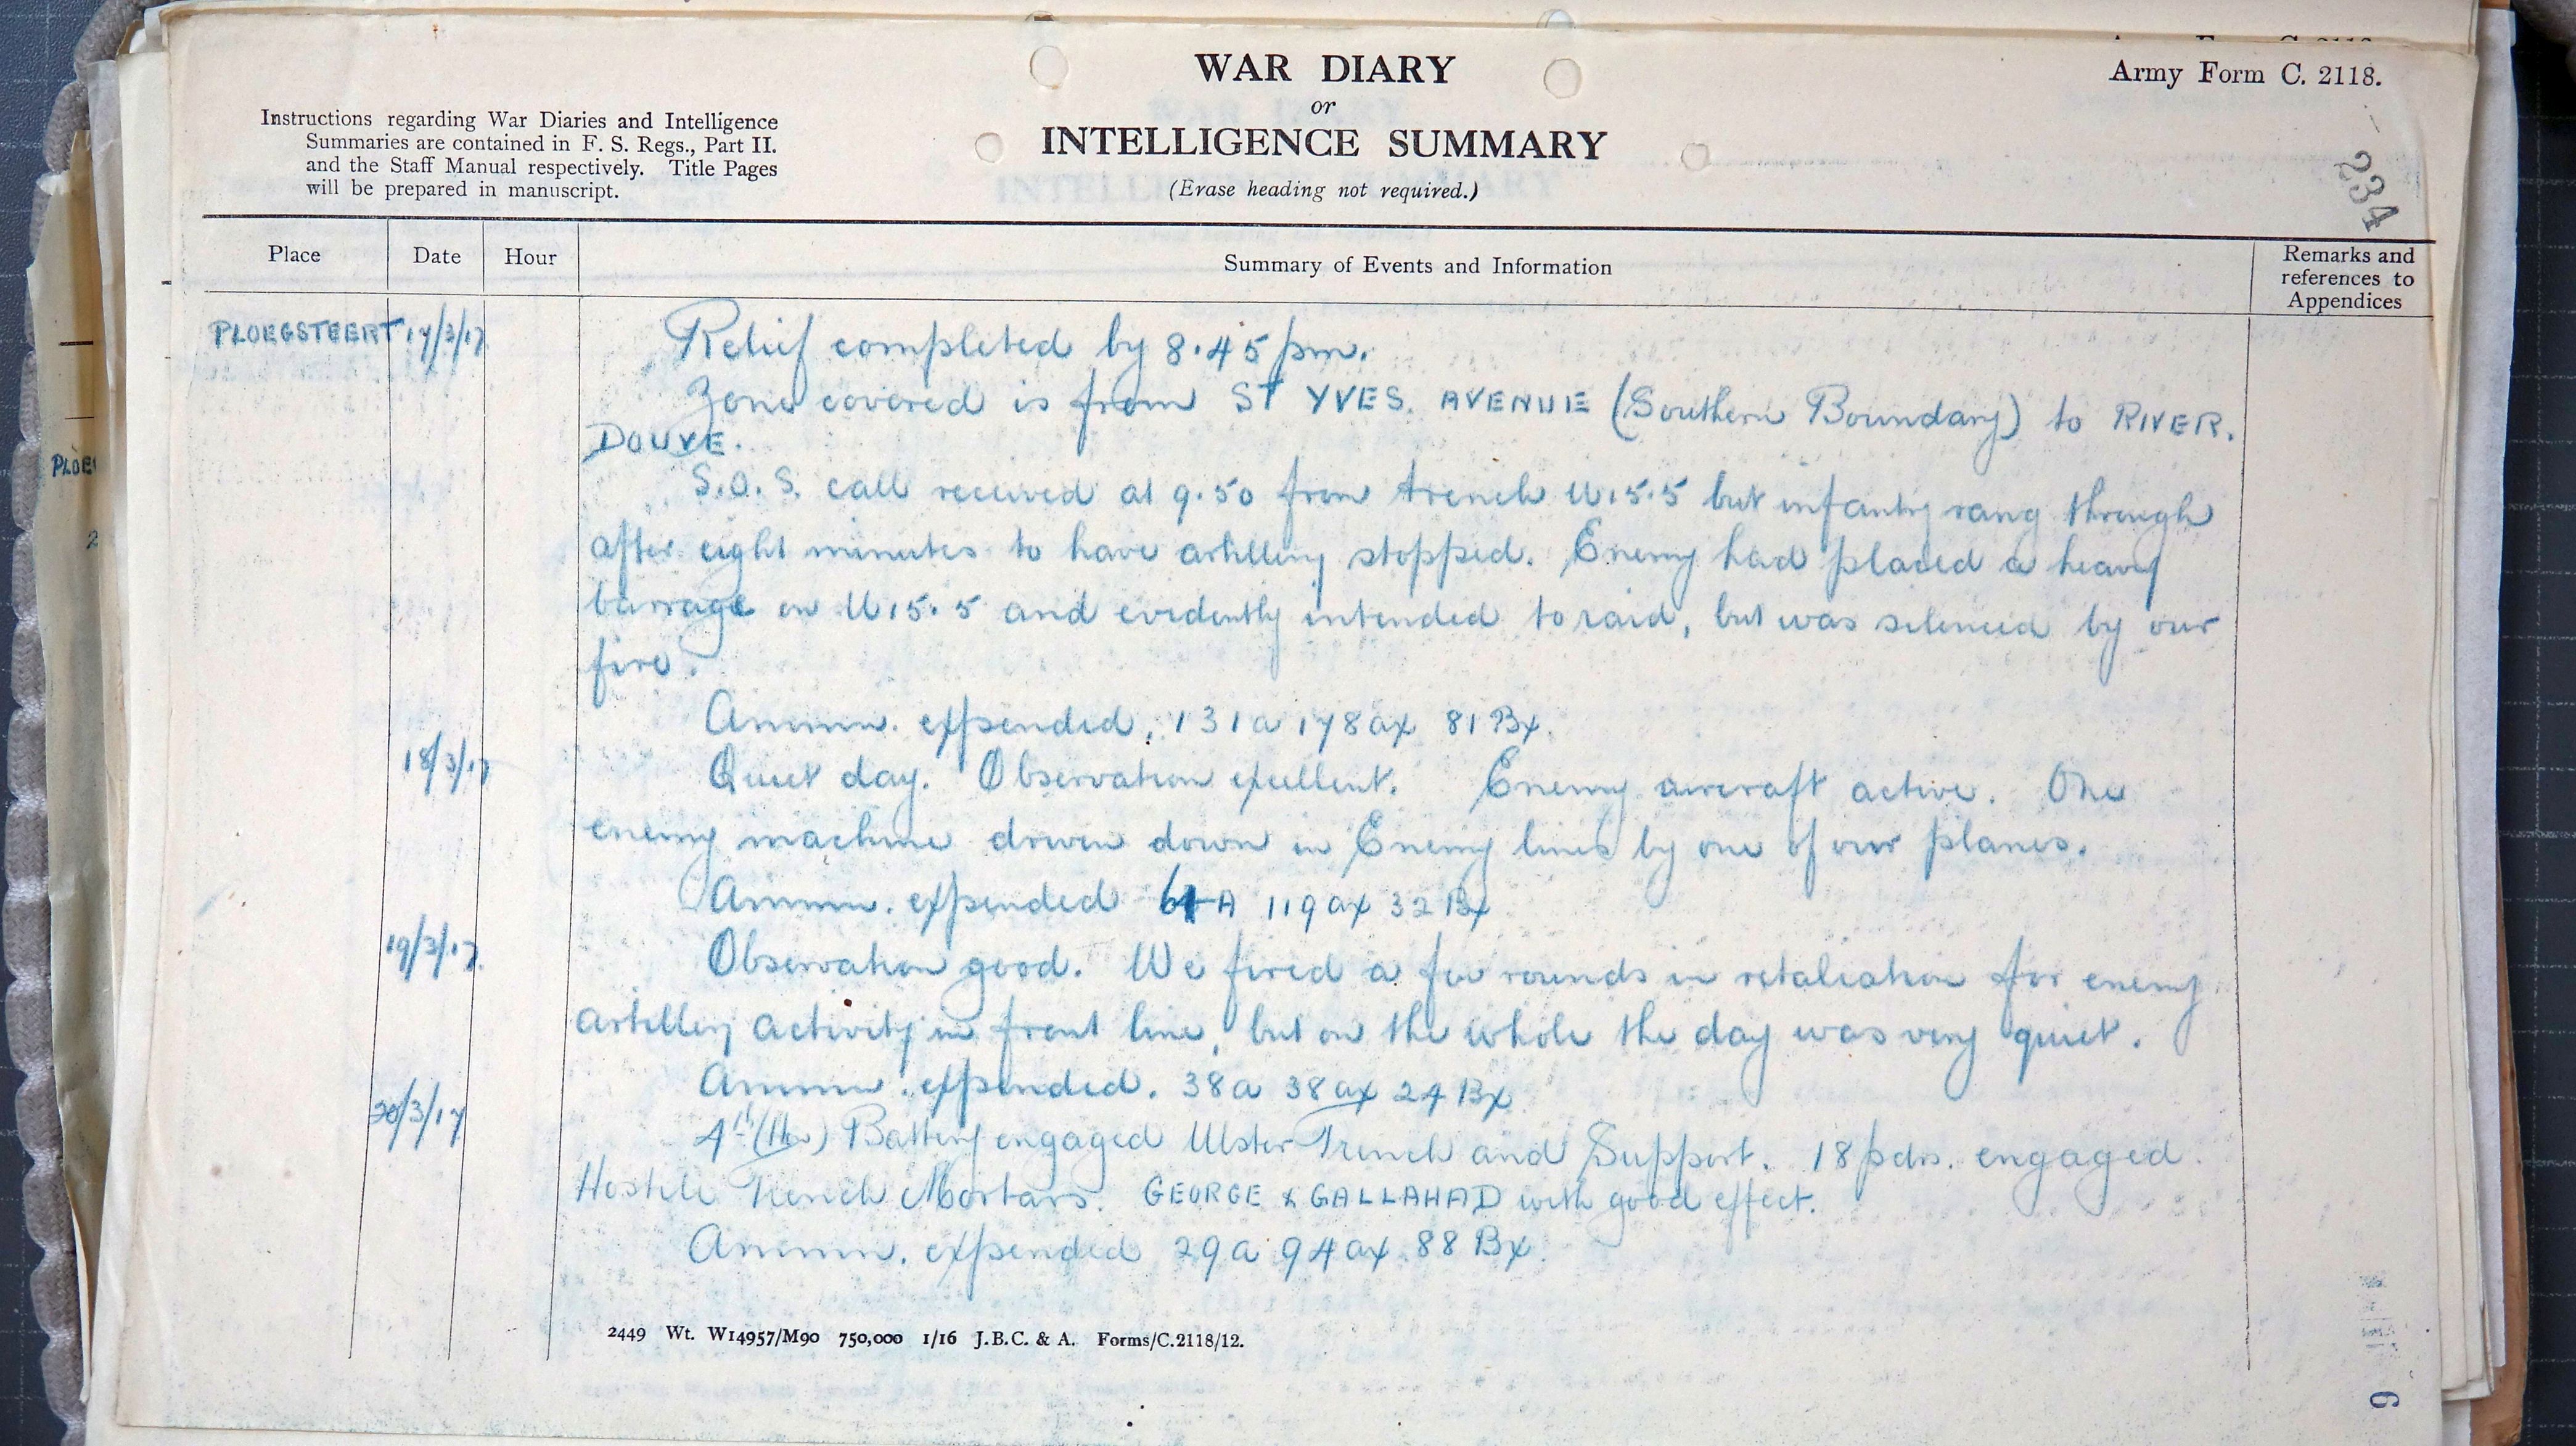 Army Form C. 2118.
WAR DIARY
or
INTELLIGENCE SUMMARY
(Erase heading not required.)
Instructions regarding War Diaries and Intelligence
Summaries are contained in F. S. Regs., Part II.
and the Staff Manual respectively. Title Pages
will be prepared in manuscript.
234
Place Date Hour Summary of Events and Information Remarks and
references to
Appendices
PLOEGSTEERT 17/3/17 Relief completed by 8.45 pm.
Zone covered is from ST YVES. AVENUE (Southern Boundary) to RIVER.
DOUVE.
S.O.S. call received at 9.50 from trench U.15.5 but infantry rang through
after eight minutes to have artillery stopped. Enemy had placed a heavy
barrage on U15.5 and evidently intended to raid, but was silenced by our
fire.
Ammn. expended, 131a 178ax 81Bx.
18/3/17 Quiet day. Observation excellent. Enemy aircraft active. One
enemy machine driven down in Enemy lines by one of our planes.
Ammn. expended A 119ax 32Bx
19/3/17. Observation good. We fired a few rounds in retaliation for enemy
artillery activity in front line, but on the whole the day was very quiet.
Ammn. expended. 38a 38ax 24Bx
20/3/17 4th (How) Battery engaged Ulster Trench and Support. 18 pdrs. engaged
Hostile Trench Mortars. GEORGE & GALLAHAD with good effect.
Ammn. expended 29a 94ax 88Bx.
2449 Wt. W14957/M90 750,000 1/16 J.B.C. & A. Forms/C.2118/12.
PLOE
2
6